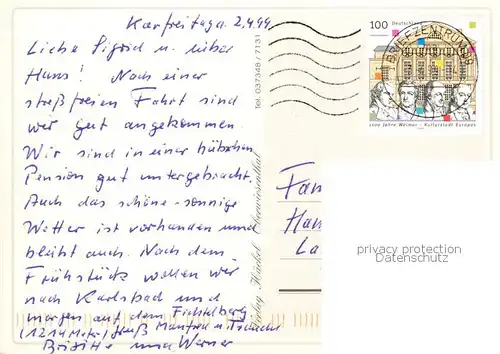 Karfreitag d. 2.4.99
Liebe Sigrid u. lieber
Hans! Nach einer
streßfreien Fahrt sind
wir gut angekommen.
Wir sind in einer hübschen
Pension gut untergebracht.
Auch das schöne - sonnige
Wetter ist vorhanden und
bleibt auch. Nach dem
Frühstück wollen wir
nach Karlsbad und
morgen auf dem Fichtelberg
(1214 Meter) Gruß Manfred u.
Brigitte und Werner
Tel. 037348 / 7131
Verlag Häckel Oberwiesenthal
100 Deutschland
BRIEFZENTRUM 09
1100 Jahre Weimar - Kulturstadt Europas
Fam
Han
La
privacy protection
Datenschutz